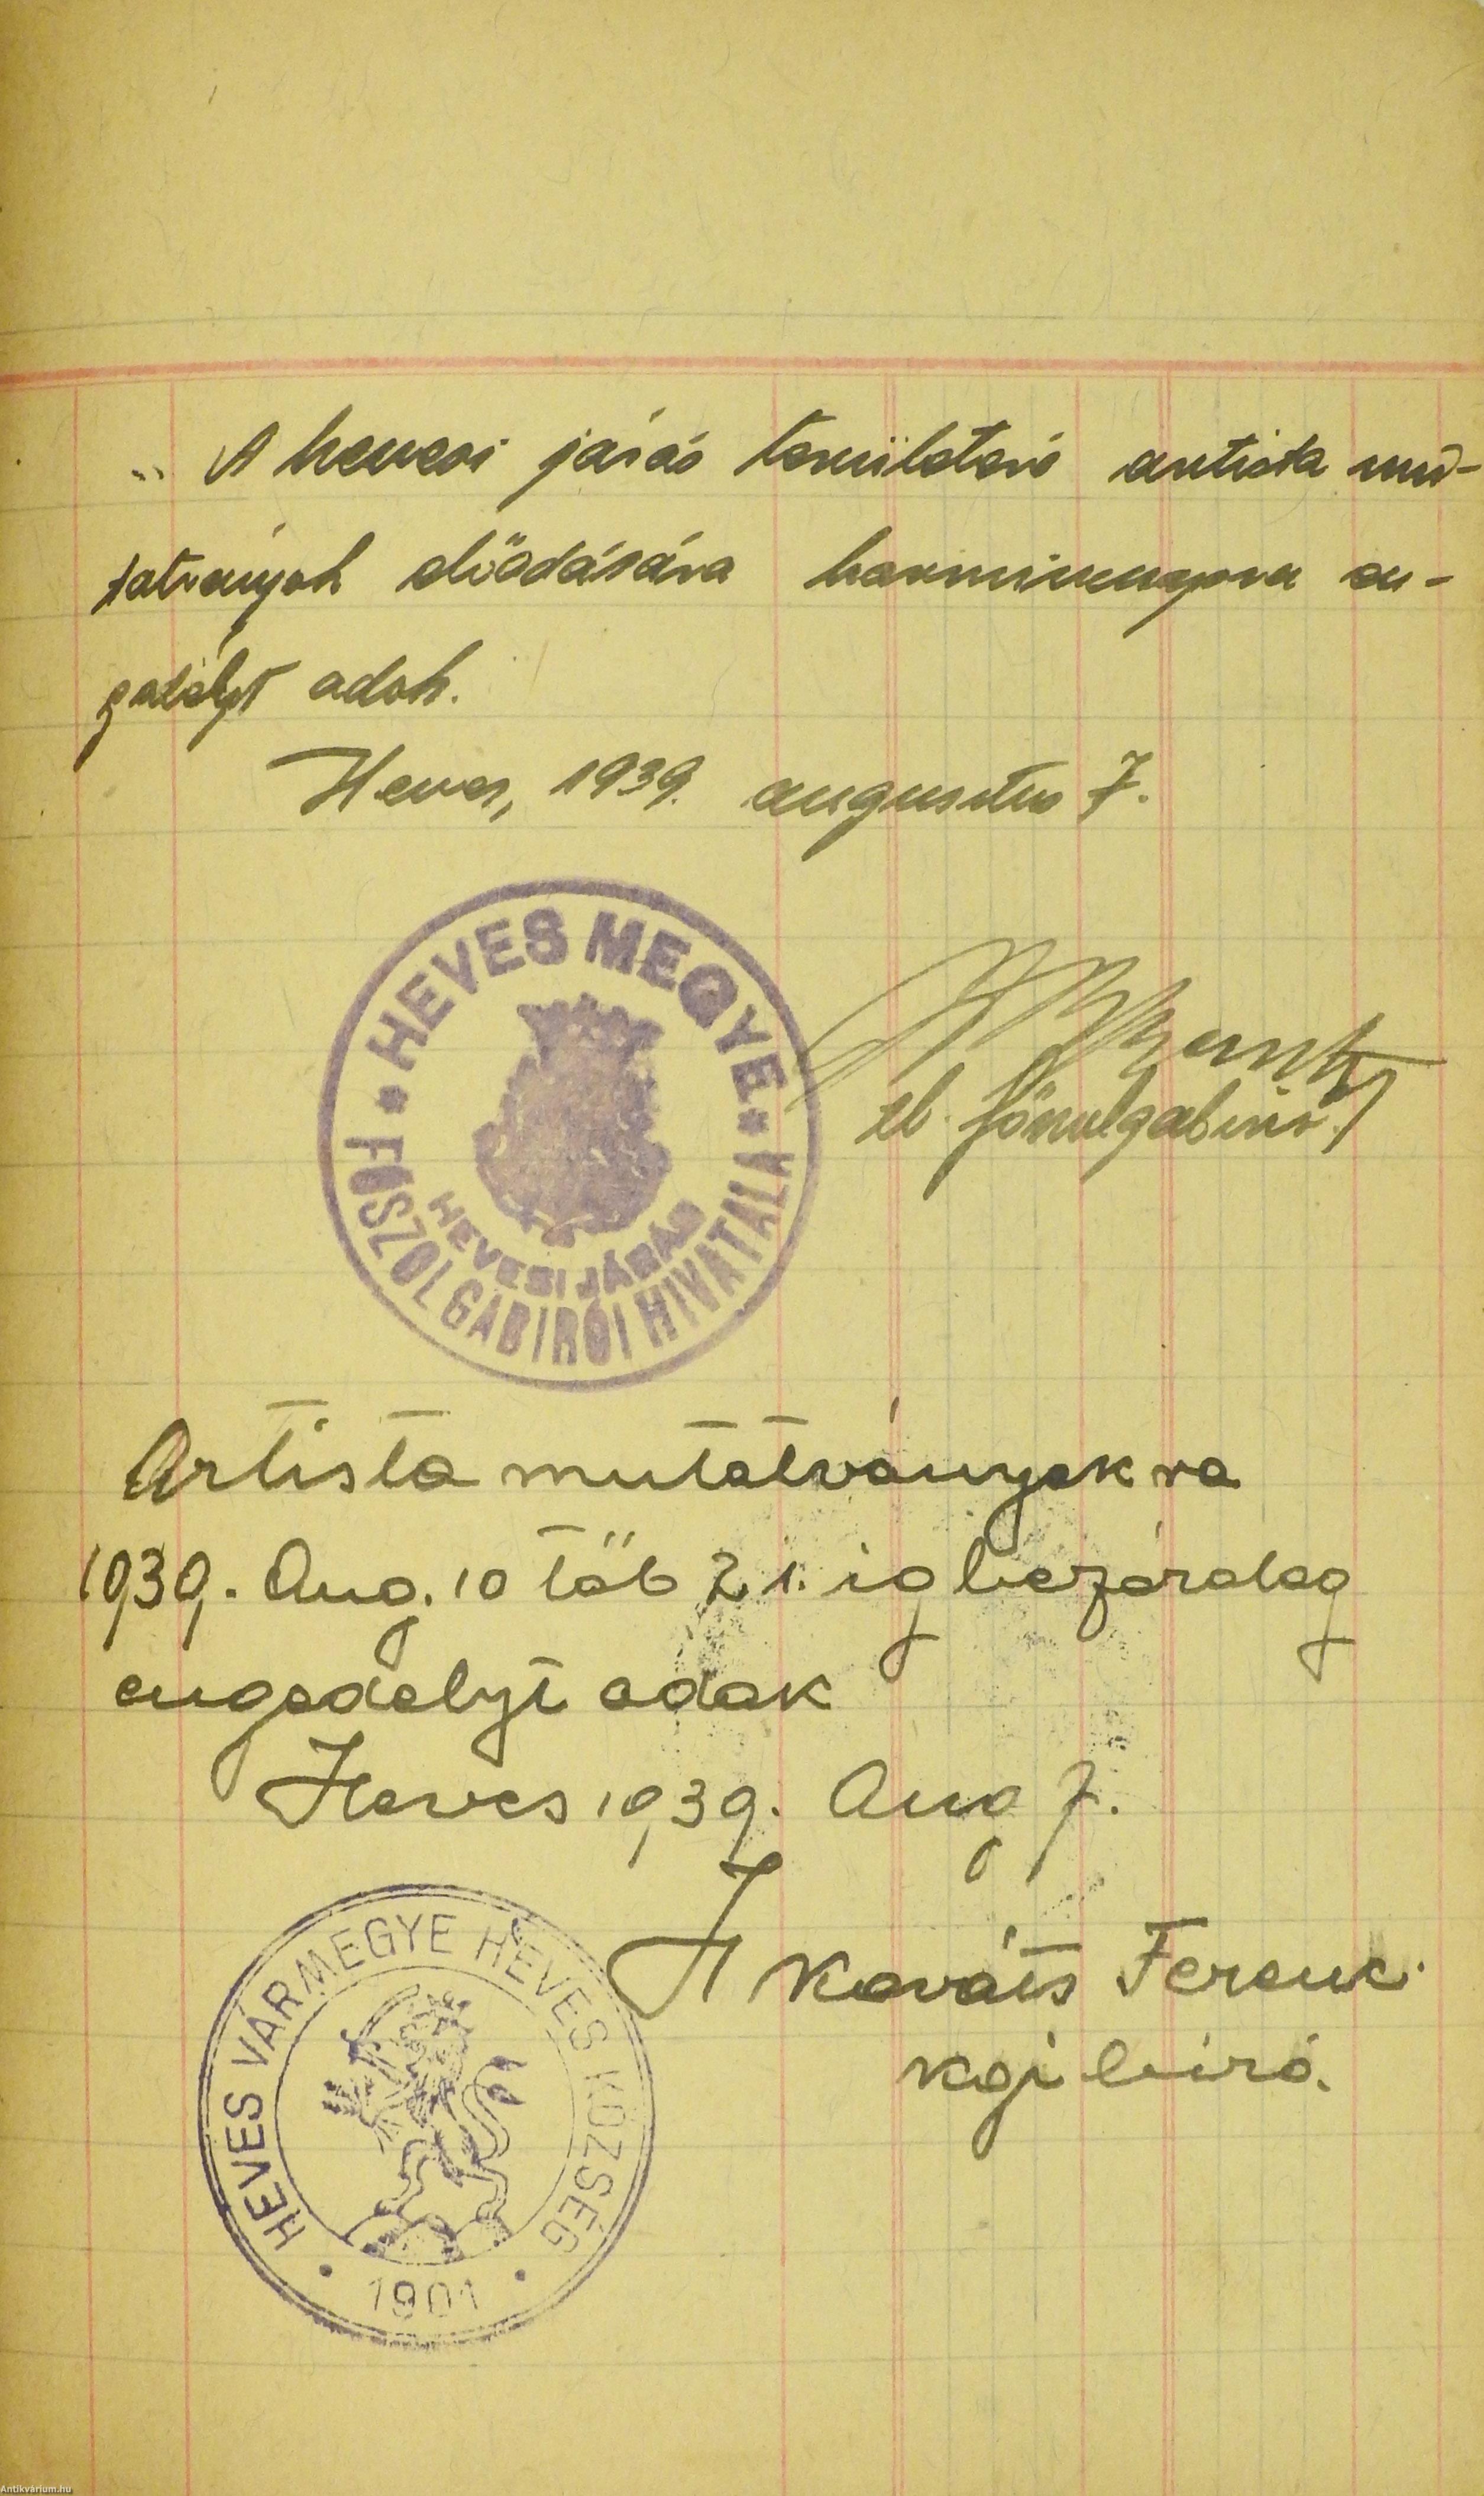 „ A hevesi járás területére artista mu-
tatványok előadására harmincnapra en-
gedélyt adok.
Heves, 1939. augusztus 7.
HEVES MEGYE
HEVESI JÁRÁS
FŐSZOLGABIRÓI HIVATALA
tb. főszolgabiró.
Artista mutatványokra
1939. Aug. 10 től 21. ig bezárolag
engedélyt adok
Heves 1939. Aug 7.
Kováts Ferenc
kgi biró.
HEVES VÁRMEGYE HEVES KÖZSÉG
1901
Antikvárium.hu